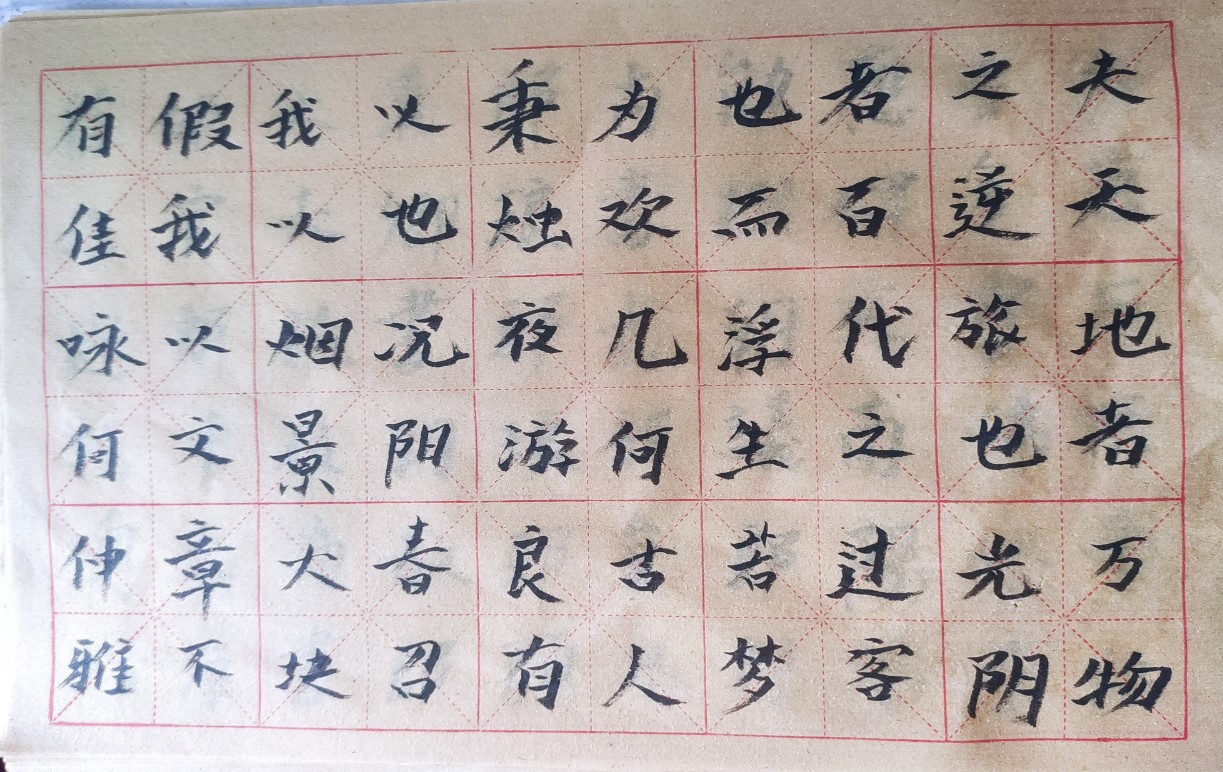 夫天地者万物
之逆旅也光阴
者百代之过客
也而浮生若梦
为欢几何古人
秉烛夜游良有
以也况阳春召
我以烟景大块
假我以文章不
有佳咏何伸雅